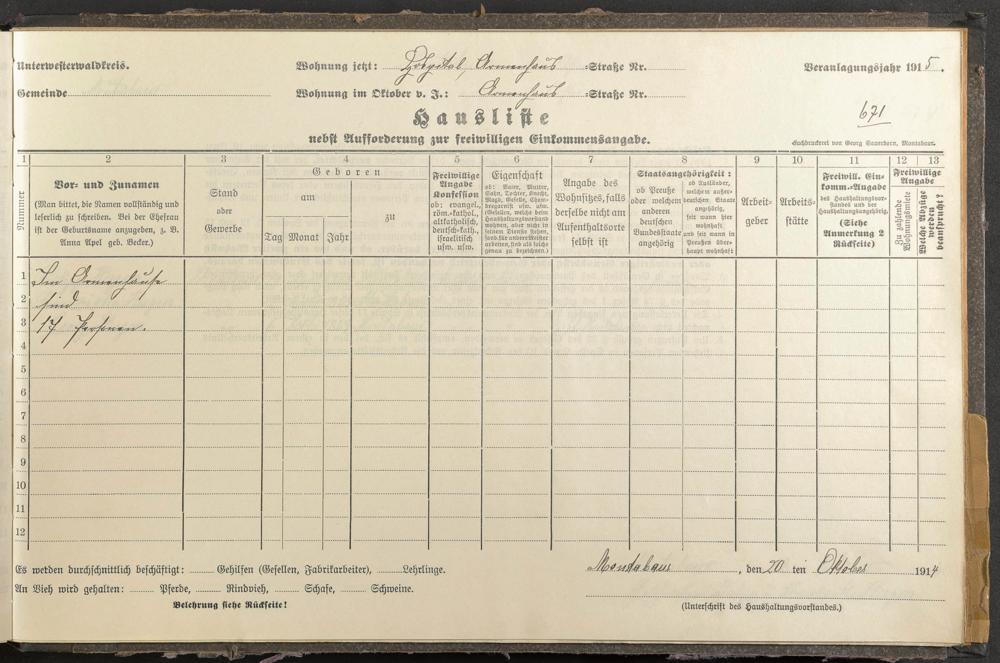 Unterwesterwaldkreis.
Wohnung jetzt: Hospital Armenhaus =Straße Nr.
Veranlagungsjahr 1915.
Gemeinde
Wohnung im Oktober v. J.: Armenhaus =Straße Nr.
671
Hausliste
nebst Aufforderung zur freiwilligen Einkommensangabe.
Buchdruckerei von Georg Sauerborn, Montabaur.
1 2 3 4 5 6 7 8 9 10 11 12 13
Nummer
Vor- und Zunamen
(Man bittet, die Namen vollständig und
leserlich zu schreiben. Bei der Ehefrau
ist der Geburtsname anzugeben, z. B.
Anna Apel geb. Becker.)
Stand
oder
Gewerbe
Geboren
am
zu
Tag Monat Jahr
Freiwillige
Angabe
Konfession
ob: evangel.,
röm.=kathol.,
altkatholisch,
deutsch=kath.,
israelitisch
usw. usw.
Eigenschaft
ob: Vater, Mutter,
Sohn, Tochter, Knecht,
Magd, Geselle, Cham-
bregarnist usw.
(Gesellen, welche beim
Haushaltungsvorstand
wohnen, aber nicht in
seinem Dienste stehen,
sind als solche
genau zu bezeichnen.)
Angabe des
Wohnsitzes, falls
derselbe nicht am
Aufenthaltsorte
selbst ist
Staatsangehörigkeit:
ob Preuße
oder welchem
anderen
deutschen
Bundesstaate
angehörig
ob Ausländer,
welchem außer-
deutschen Staate
angehörig,
seit wann hier
wohnhaft
und seit wann in
Preußen über-
haupt wohnhaft
Arbeit-
geber
Arbeits-
stätte
Freiwill. Ein-
komm.=Angabe
des Haushaltungsvor-
standes und der
Haushaltungsangehörig.
(Siehe
Anmerkung 2
Rückseite)
Freiwillige
Angabe
Zu zahlende
Wohnungsmiete
Welche Abzüge
werden
beansprucht?
1 Im Armenhause
2 sind
3 17 Personen.
4
5
6
7
8
9
10
11
12
Es werden durchschnittlich beschäftigt: Gehilfen (Gesellen, Fabrikarbeiter), Lehrlinge.
Montabaur, den 20 ten Oktober 1914
An Vieh wird gehalten: Pferde, Rindvieh, Schafe, Schweine.
Belehrung siehe Rückseite!
(Unterschrift des Haushaltungsvorstandes.)